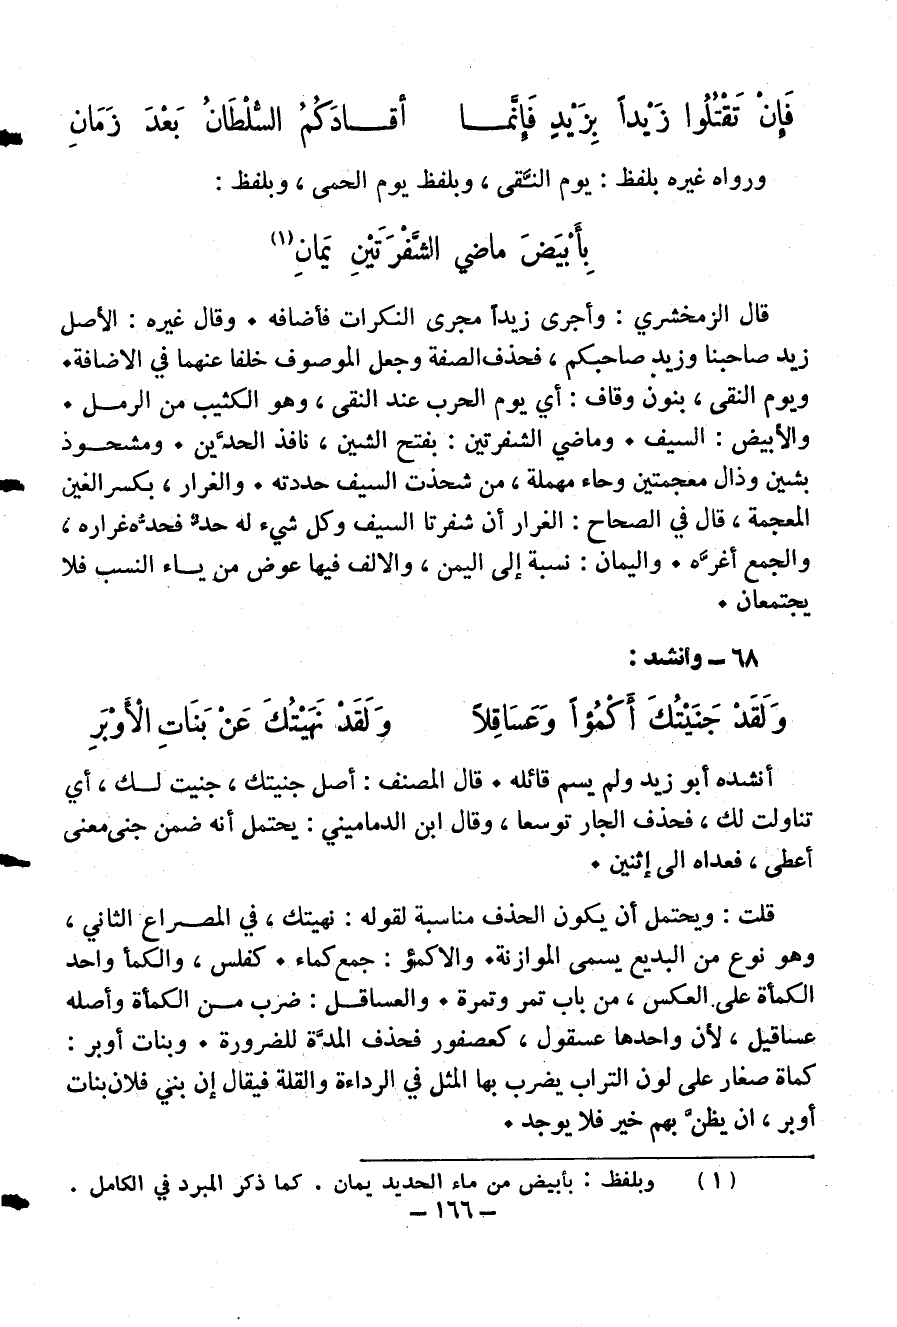 فَإِنْ تَقْتُلُوا زَيْداً بِزَيْدٍ فَإِنَّمَـــا أقـــادَكُمُ السُّلْطَانُ بَعْدَ زَمَانِ
ورواه غيره بلفظ : يوم النَّقى ، وبلفظ يوم الحمى ، وبلفظ :
بِأَبْيَضَ ماضي الشَّفْرَتَيْنِ يَمَانِ(١)
قال الزمخشري : وأجرى زيداً مجرى النكرات فأضافه ٠ وقال غيره : الأصل
زيد صاحبنا وزيد صاحبكم ، فحذف الصفة وجعل الموصوف خلفا عنهما في الاضافة٠
ويوم النقى ، بنون وقاف : أي يوم الحرب عند النقى ، وهو الكثيب من الرمــل ٠
والأبيض : السيف ٠ وماضي الشفرتين : بفتح الشين ، نافذ الحدَّين ٠ ومشحــوذ
بشين وذال معجمتين وحاء مهملة ، من شحذت السيف حددته ٠ والغرار ، بكسر الغين
المعجمة ، قال في الصحاح : الغرار أن شفرتا السيف وكل شيء له حدٌّ فحدُّه غراره ،
والجمع أغرَّه ٠ واليمان : نسبة إلى اليمن ، والالف فيها عوض من يــاء النسب فلا
يجتمعان ٠
٦٨ – وانشد :
وَلَقَدْ جَنَيْتُكَ أَكْمُؤاً وَعَسَاقِلاً وَلَقَدْ نَهَيْتُكَ عَنْ بَنَاتِ الْأَوْبَرِ
أنشده أبو زيد ولم يسم قائله ٠ قال المصنف : أصل جنيتك ، جنيت لــك ، أي
تناولت لك ، فحذف الجار توسعا ، وقال ابن الدماميني : يحتمل أنه ضمن جنى معنى
أعطى ، فعداه الى إثنين ٠
قلت : ويحتمل أن يكون الحذف مناسبة لقوله : نهيتك ، في المصــراع الثاني ،
وهو نوع من البديع يسمى الموازنة٠ والاكمؤ : جمع كماء ٠ كفلس ، والكمأ واحد
الكمأة على العكس ، من باب تمر وتمرة ٠ والعساقــل : ضرب مــن الكمأة وأصله
عساقيل ، لأن واحدها عسقول ، كعصفور فحذف المدَّة للضرورة ٠ وبنات أوبر :
كماة صغار على لون التراب يضرب بها المثل في الرداءة والقلة فيقال إن بني فلان بنات
أوبر ، ان يظنَّ بهم خير فلا يوجد ٠
(١) وبلفظ : بأبيض من ماء الحديد يمان . كما ذكر المبرد في الكامل .
– ١٦٦ –